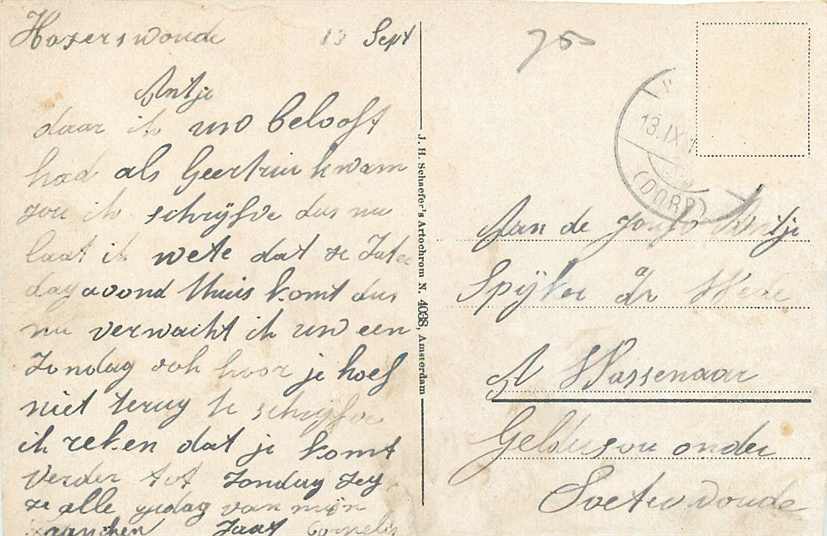 Hazerswoude 13 Sept
Antje
daar ik uw belooft
had als Geertrui kwam
zou ik schrijfve dus nu
laat ik wete dat ze Zater
dag avond thuis komt dus
nu verwacht ik uw een
Zondag ook hoor je hoef
niet terug te schrijfve
ik reken dat je komt
verder tot Zondag zeg
ze alle gedag van mijn
Jaat Cornelis
J. H. Schaefer's Artochrom N. 4038, Amsterdam
75
13.IX
(DORP)
Aan de Jongo Antje
Spijker
A Wassenaar
onder
Soeterwoude